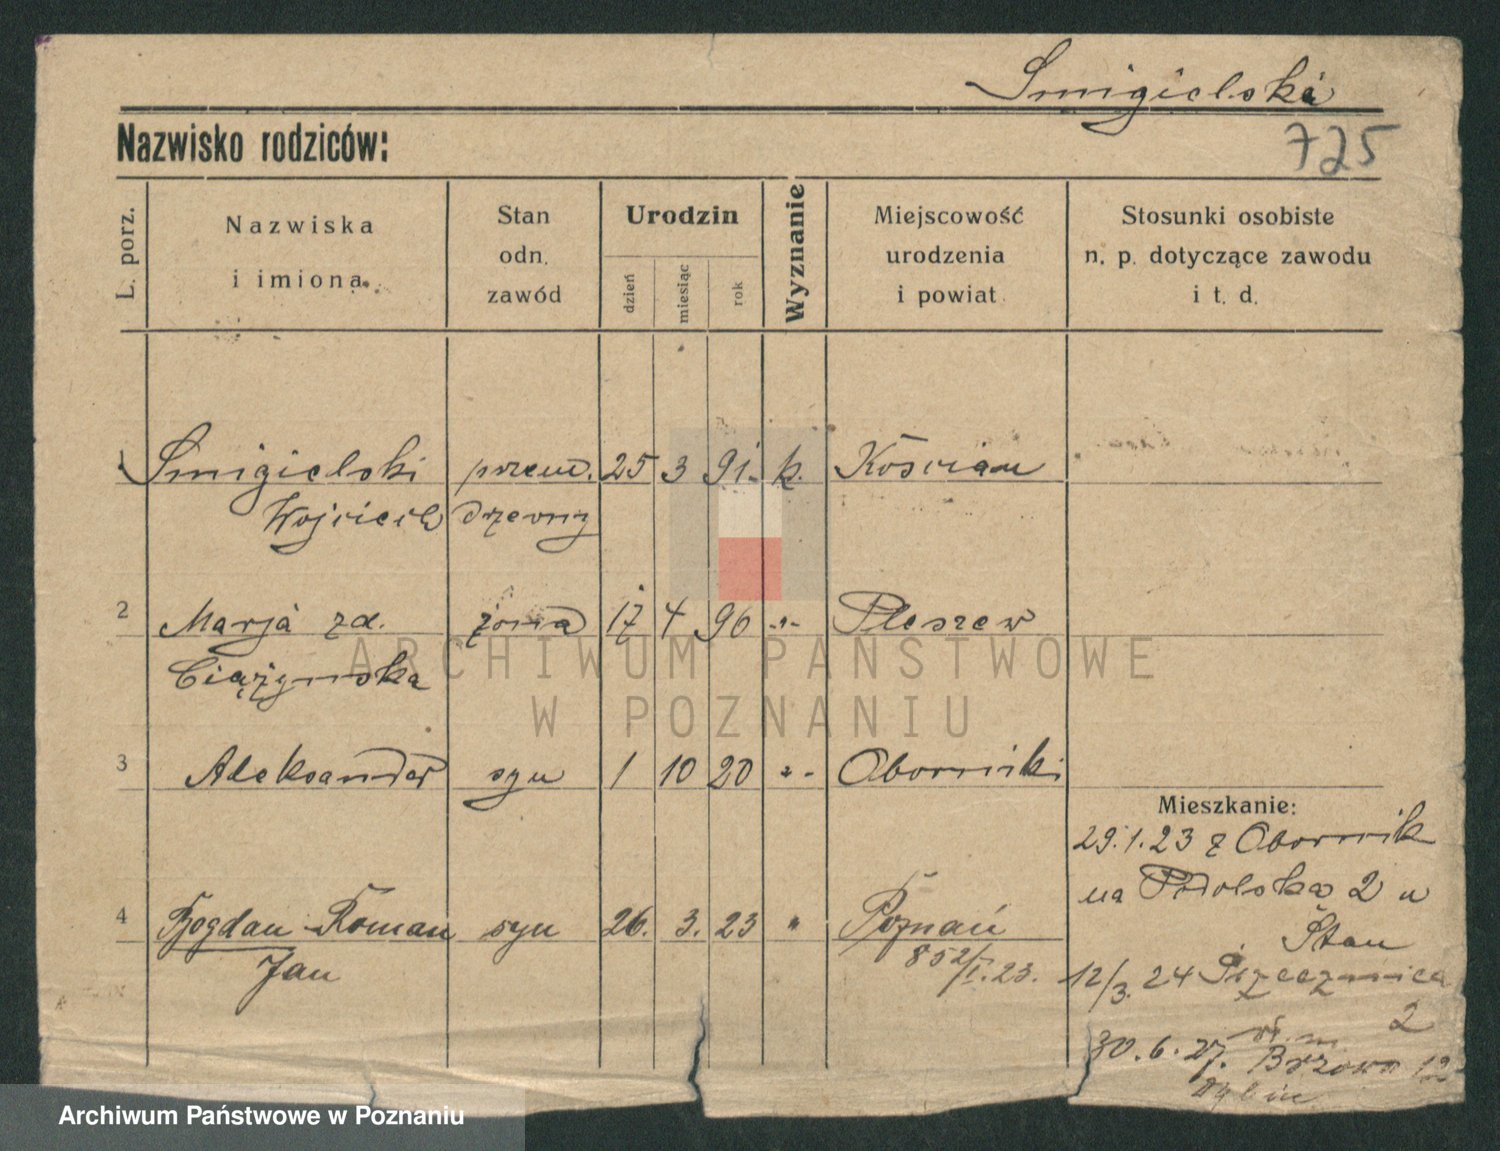 Smigielski
Nazwisko rodziców:
725
L. porz.
Nazwiska
i imiona
Stan
odn.
zawód
Urodzin
dzień
miesiąc
rok
Wyznanie
Miejscowość
urodzenia
i powiat
Stosunki osobiste
n. p. dotyczące zawodu
i t. d.
Smigielski przem. 25 3 91. k. Kościan
Wojciech drzewny
2 Marja zd. żona 17 4 96 -"- Pleszew
Ciążyńska
3 Aleksander syn 1 10 20 "- Oborniki
Mieszkanie:
29.1.23 z Obornik
na Podolska 2 u
Stan
4 Bogdan Roman syn 26. 3. 23 " Poznań
Jan
852/I.23.
12/3. 24 Przecznica
2
30.6.27.
ARCHIWUM PAŃSTWOWE
W POZNANIU
Archiwum Państwowe w Poznaniu